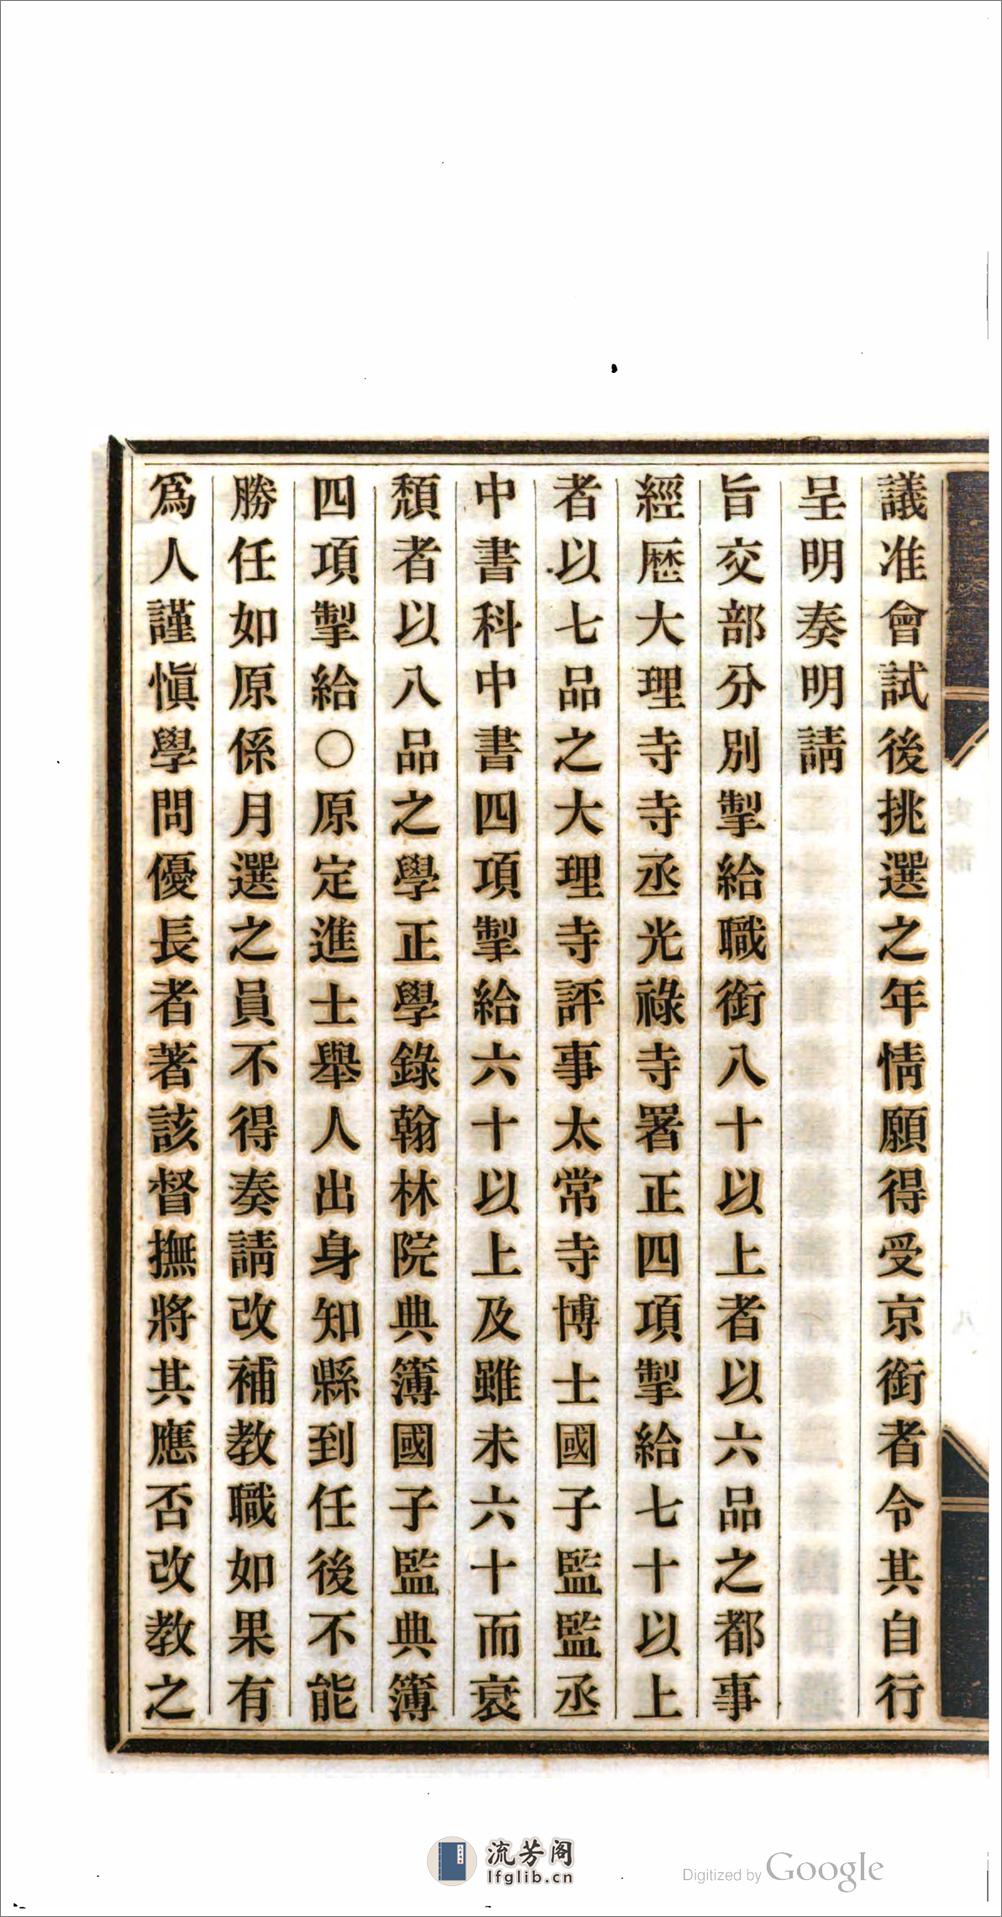 議准會試後挑選之年情願得受京銜者令其自行
呈明奏明請
旨交部分別掣給職銜八十以上者以六品之都事
經歷大理寺寺丞光祿寺署正四項掣給七十以上
者以七品之大理寺評事太常寺博士國子監監丞
中書科中書四項掣給六十以上及雖未六十而衰
頽者以八品之學正學錄翰林院典簿國子監典簿
四項掣給○原定進士舉人出身知縣到任後不能
勝任如原係月選之員不得奏請改補教職如果有
爲人謹愼學問優長者著該督撫將其應否改教之
流芳阁
lfglib.cn
Digitized by Google